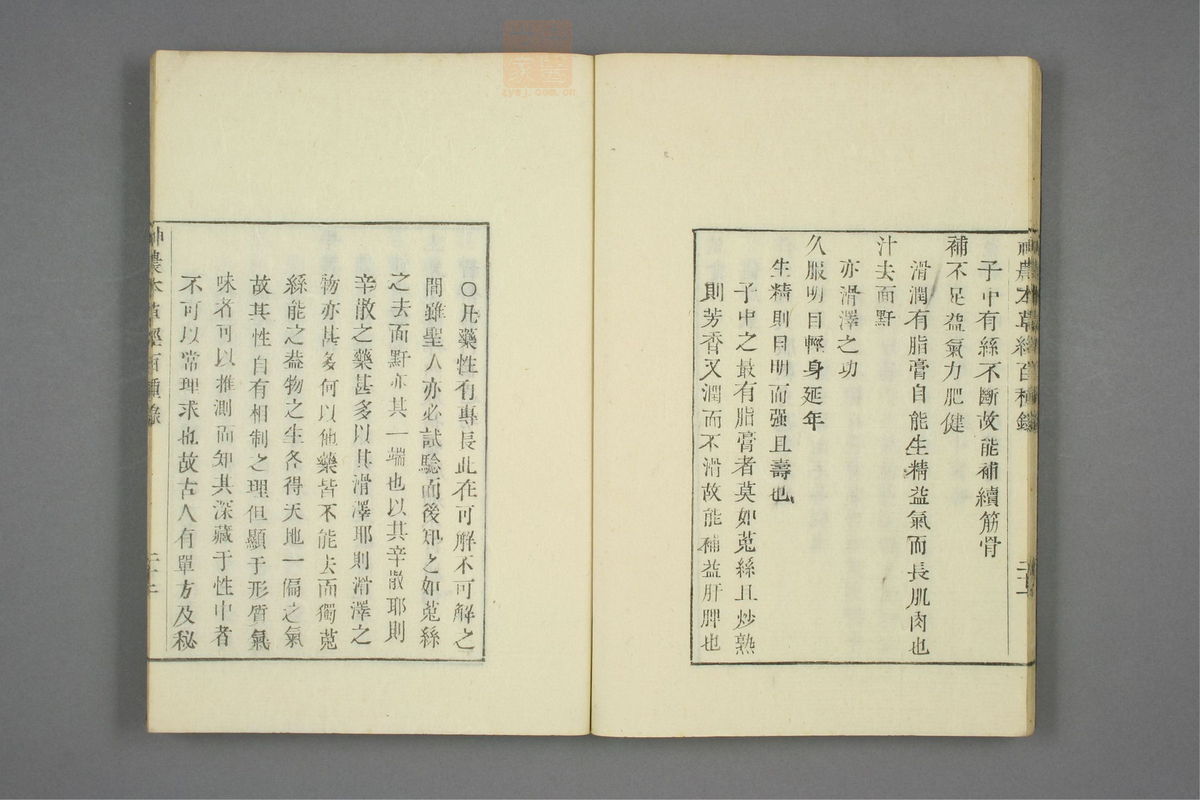 神農本草經百種錄
子中有絲不斷故能補續筋骨
補不足益氣力肥健
滑潤有脂膏自能生精益氣而長肌肉也
汁去面䵟
亦滑澤之功
久服明目輕身延年
生精則目明而强且壽也
子中之最有脂膏者莫如菟絲且炒熟
則芳香又潤而不滑故能補益肝脾也
〇凡藥性有專長此在可解不可解之
間雖聖人亦必試驗而後知之如菟絲
之去面䵟亦其一端也以其辛散耶則
辛散之藥甚多以其滑澤耶則滑澤之
物亦甚多何以他藥皆不能去而獨菟
絲能之葢物之生各得天地一偏之氣
故其性自有相制之理但顯于形質氣
味者可以推測而知其深藏于性中者
不可以常理求也故古人有單方及秘
神農本草經百種錄
zysj.com.cn